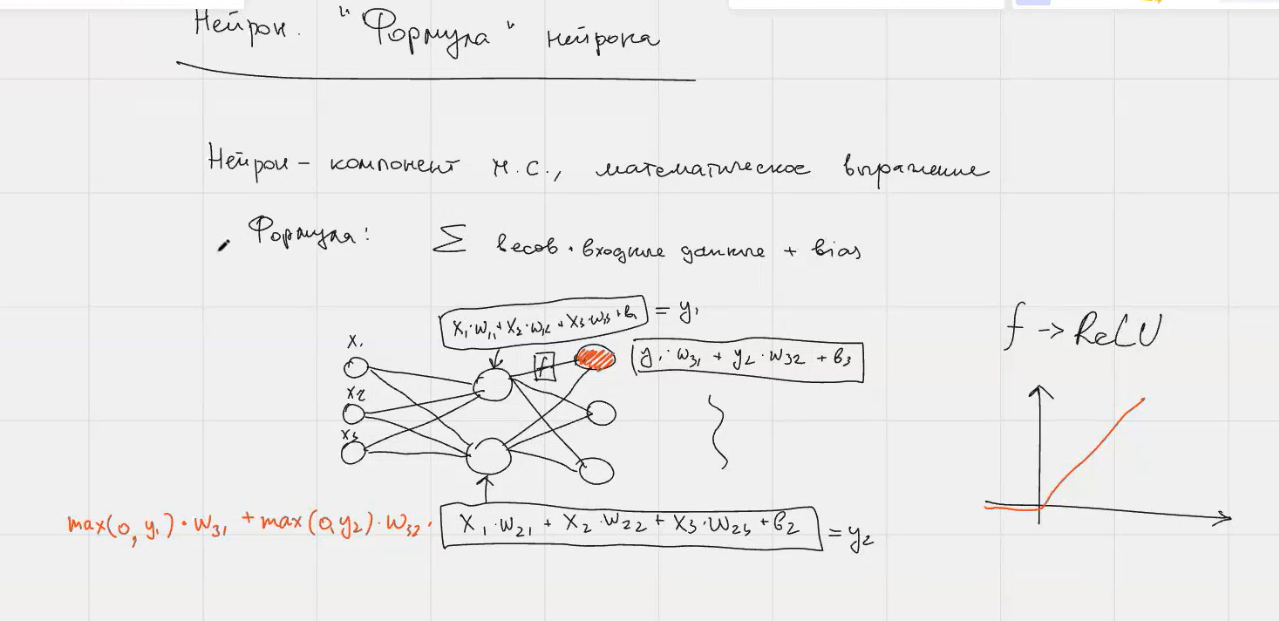 Нейрон. "Формула" нейрона
Нейрон – компонент н.с., математическое выражение
Формула: Σ весов · входные данные + bias
x₁·w₁₁ + x₂·w₁₂ + x₃·w₁₃ + b₁ = y₁
f → ReLU
x₁
f
y₁·w₃₁ + y₂·w₃₂ + b₃
x₂
x₃
max(0, y₁)·w₃₁ + max(0, y₂)·w₃₂·
x₁·w₂₁ + x₂·w₂₂ + x₃·w₂₃ + b₂ = y₂